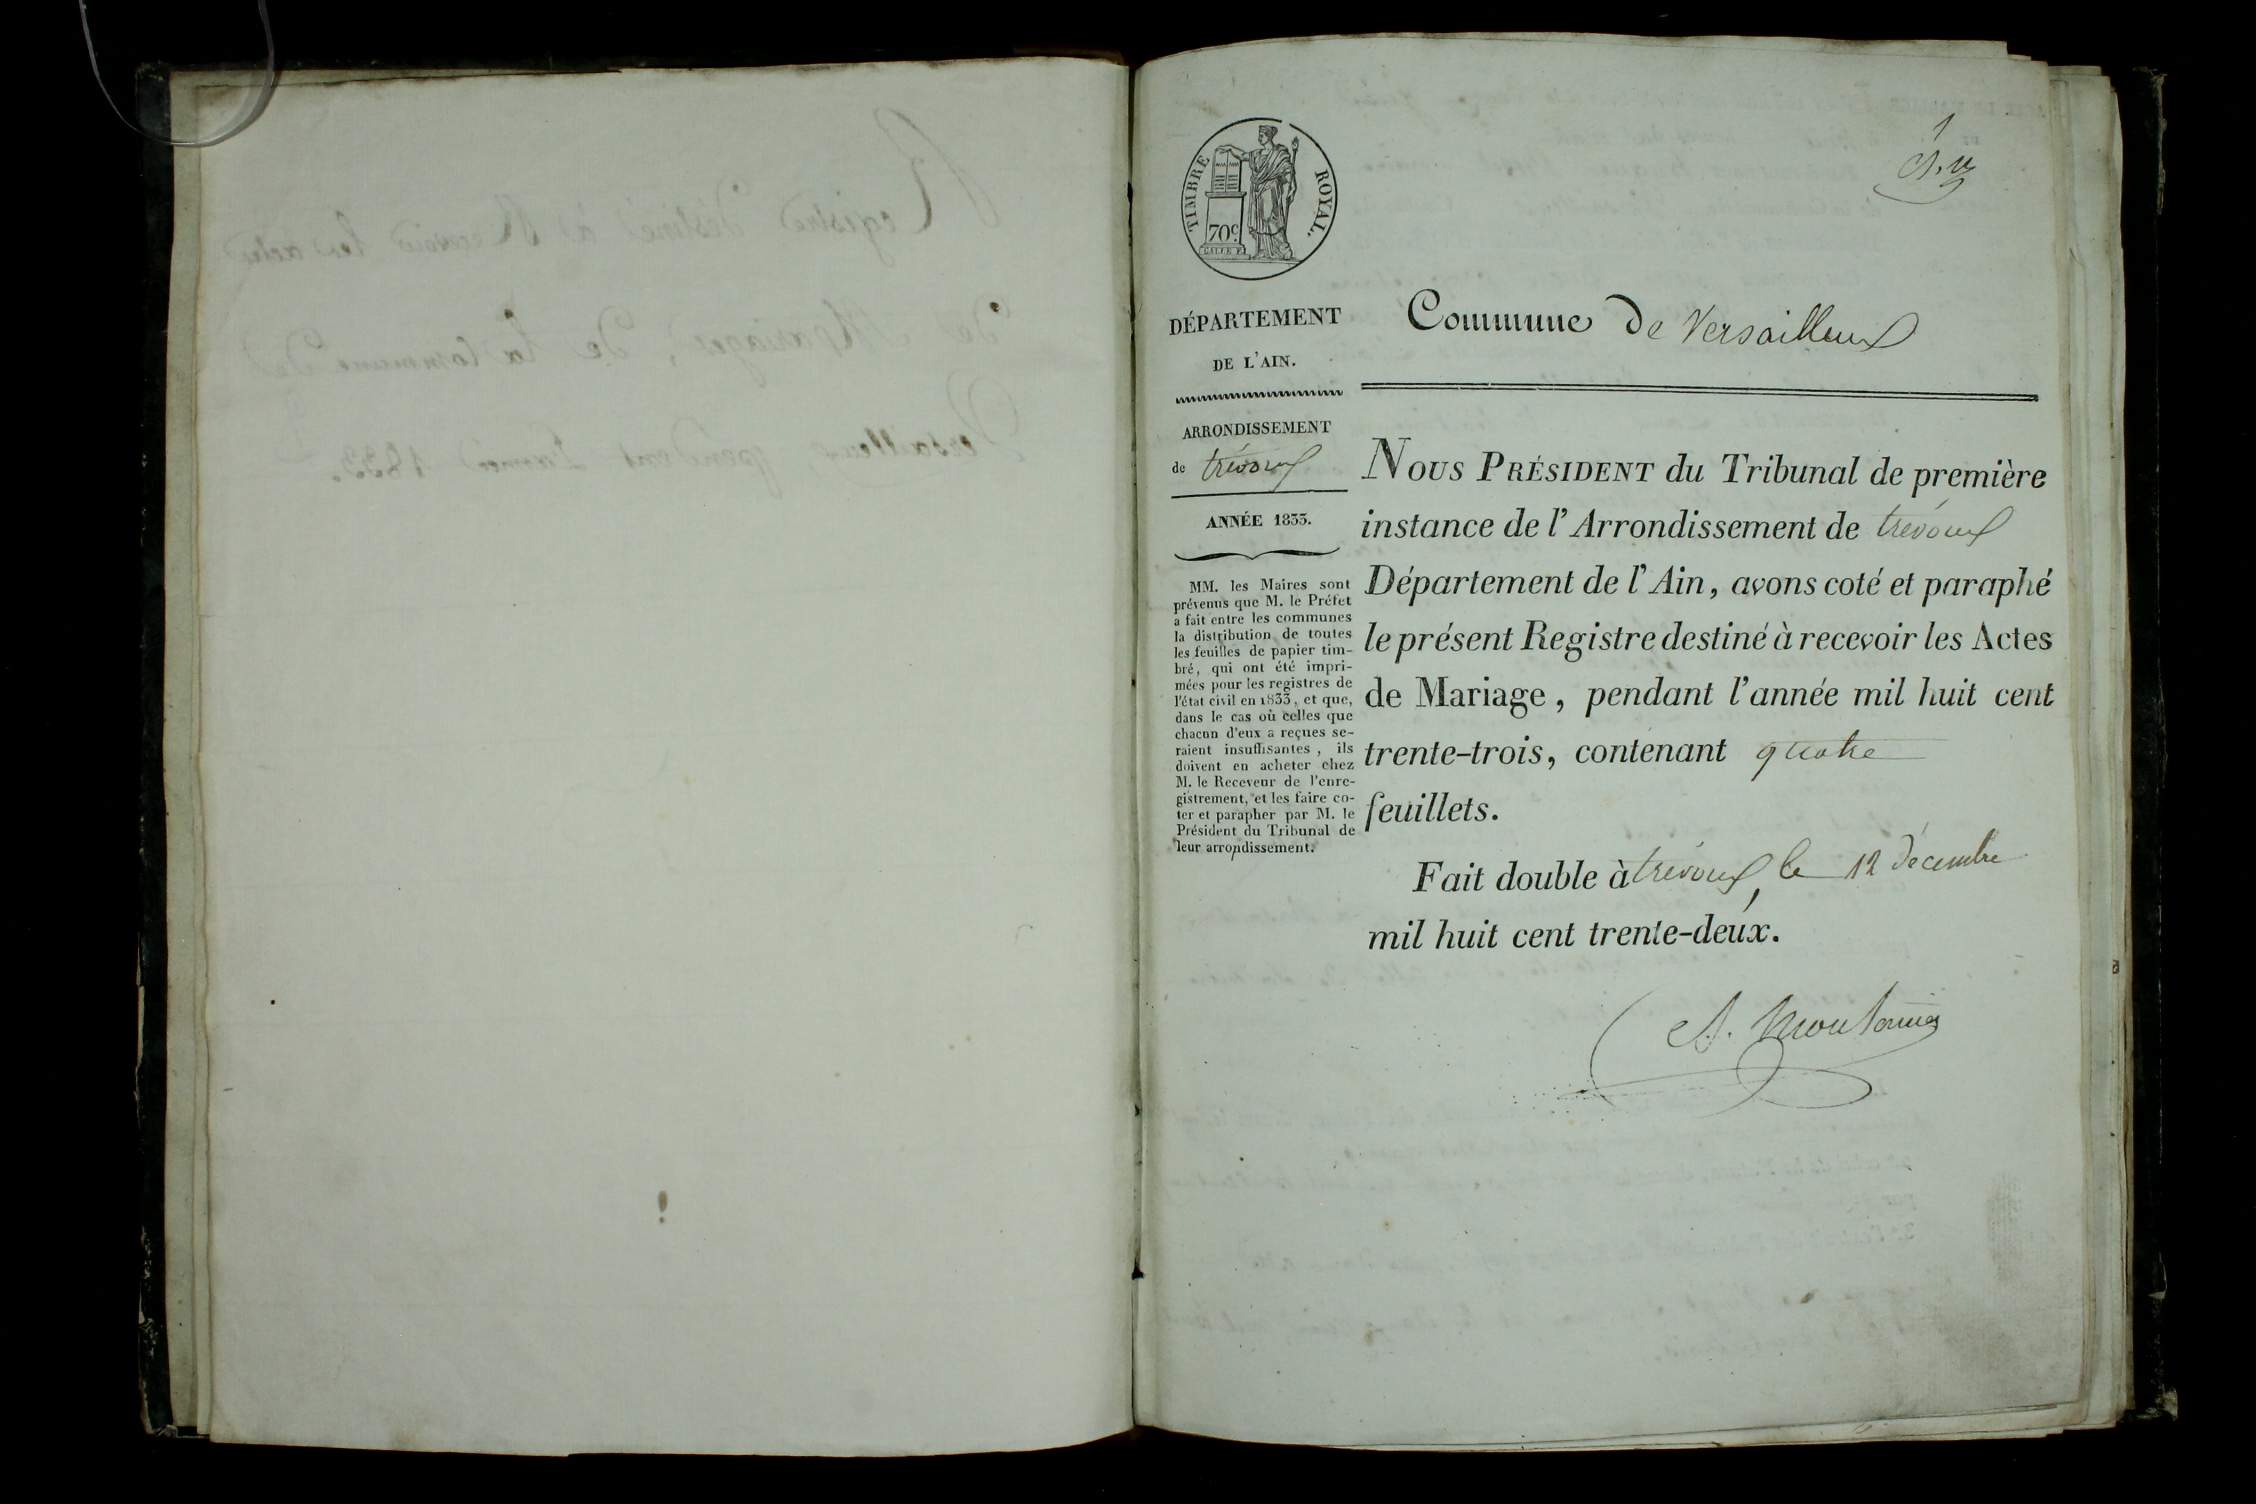 1
TIMBRE ROYAL.
70c
DÉPARTEMENT
DE L'AIN.
ARRONDISSEMENT
de trévoux
ANNÉE 1833.
MM. les Maires sont
prévenus que M. le Préfet
a fait entre les communes
la distribution de toutes
les feuilles de papier tim-
bré, qui ont été impri-
mées pour les registres de
l'état civil en 1833, et que,
dans le cas où celles que
chacun d'eux a reçues se-
raient insuffisantes, ils
doivent en acheter chez
M. le Receveur de l'enre-
gistrement, et les faire co-
ter et parapher par M. le
Président du Tribunal de
leur arrondissement.
Commune de Versailleux
NOUS PRÉSIDENT du Tribunal de première
instance de l'Arrondissement de trévoux
Département de l'Ain, avons coté et paraphé
le présent Registre destiné à recevoir les Actes
de Mariage, pendant l'année mil huit cent
trente-trois, contenant quatre
feuillets.
Fait double à trévoux, le 12 décembre
mil huit cent trente-deux.